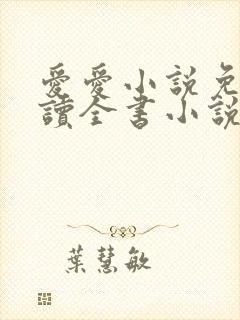 愛愛小說免
讀全書小說
葉慧敏